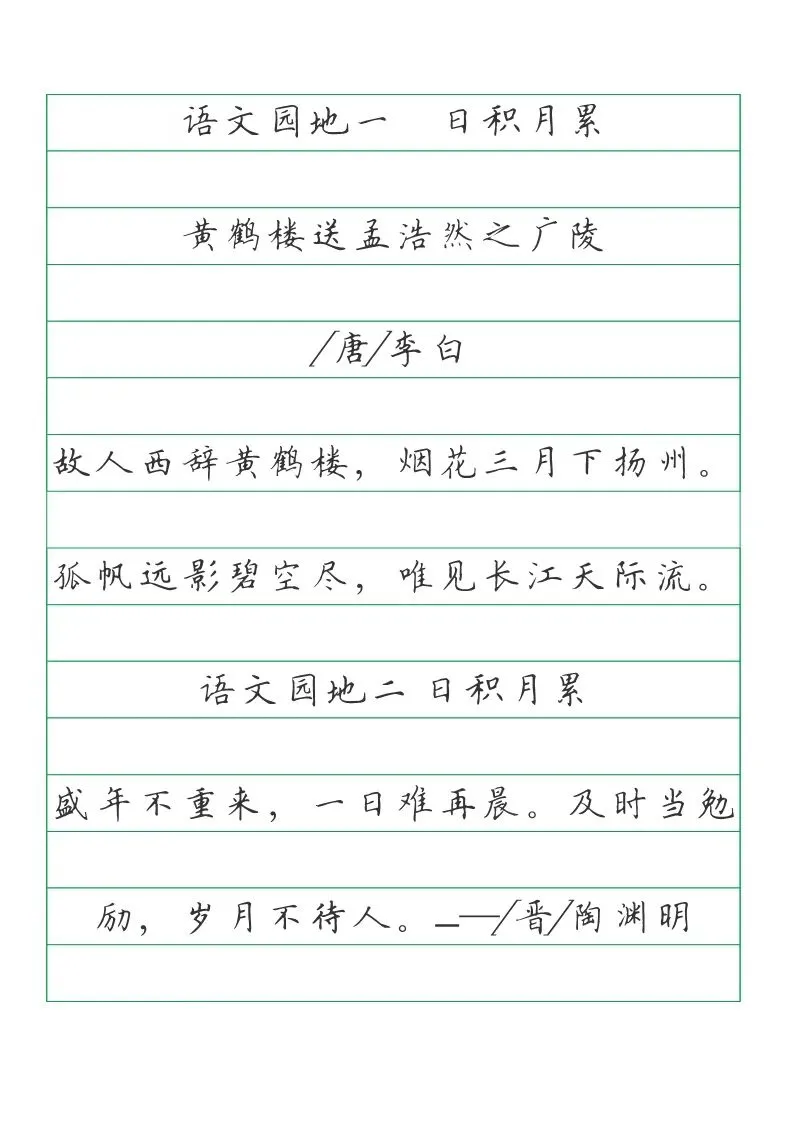 语文园地一 日积月累
黄鹤楼送孟浩然之广陵
/唐/李白
故人西辞黄鹤楼，烟花三月下扬州。
孤帆远影碧空尽，唯见长江天际流。
语文园地二 日积月累
盛年不重来，一日难再晨。及时当勉
励，岁月不待人。——/晋/陶渊明